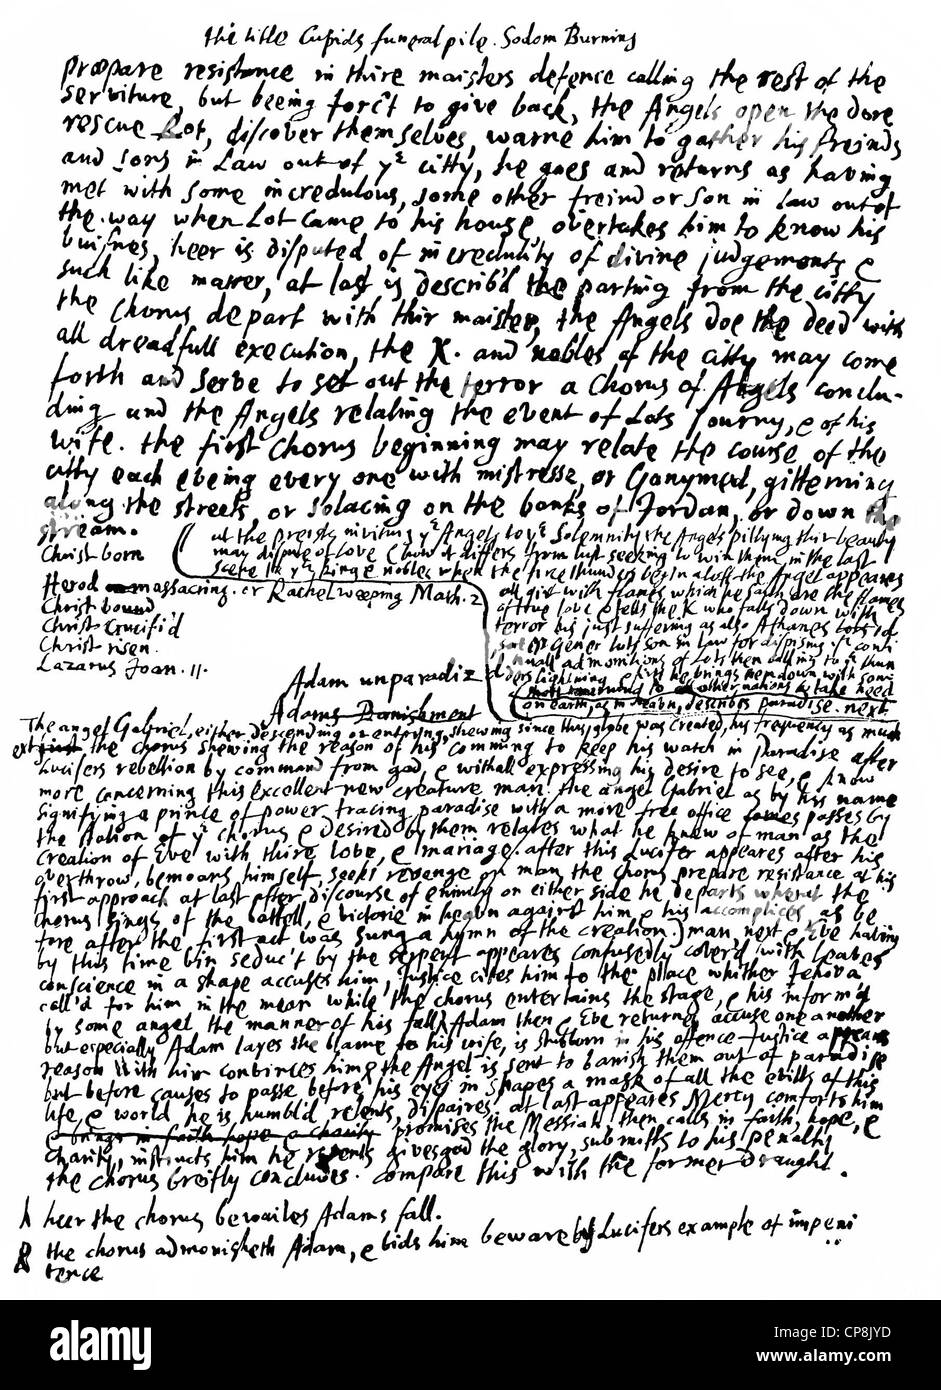 the title Cupids funeral pile. Sodom Burning
præpare resistance in thire maisters defence calling the rest of the
serviture, but beeing forc't to give back, the Angels open the dore
rescue Lot, discover themselves, warne him to gather his freinds
and sons in Law out of yᵉ citty, he goes and returns as having
met with some incredulous, some other freind or son in law out of
the way when Lot came to his house, overtakes him to know his
buisnes, heer is disputed of incredulity of divine judgements &
such like matter, at last is describ'd the parting from the citty
the Chorus depart with thir maister, the Angels doe the deed with
all dreadfull execution, the K. and nobles of the citty may come
forth and serve to set out the terror a Chorus of Angels conclu-
ding and the Angels relating the event of Lots journy, & of his
wife. the first Chorus beginning may relate the course of the
citty each evening every one with mistresse, or Ganymed, gitterning
along the streets, or solacing on the banks of Jordan, or down the
stream.
at the preists inviting yᵉ Angels to yᵉ Solemnity the Angels pittying thir beauty
may dispute of love & how it differs from lust seeking to win them, in the last
scene to yᵉ king & nobles when the firce thunders begin aloft the Angel appeares
all girt with flames which he saith are the flames
of true love & tells the K. who falls down with
terror his just suffering as also Athanes
Gener Lots son in law for dispising yᵉ conti
nuall admonitions of Lots then calling to yᵉ thun
ders lightning & fires he brings them down with som
to other nations to take heed
Christ born
Herod massacring. or Rachel weeping Math. 2
Christ bound
Christ Crucifi'd
Christ risen.
Lazarus Joan. 11.
Adam unparadiz
Adams Banishment
The angel Gabriel, either descending or entering, shewing since this globe was created, his frequency as much
on earth, as in heavn, describes paradise. next
the chorus shewing the reason of his comming to keep his watch in Paradise after
Lucifers rebellion by command from god, & withall expressing his desire to see, & know
more concerning this excellent new creature man. the angel Gabriel as by his name
signifying a prince of power tracing paradise with a more free office comes passes by
the station of yᵉ chorus & desired by them relates what he knew of man as the
creation of Eve with thire love, & mariage. after this Lucifer appeares after his
overthrow, bemoans himself, seeks revenge on man the chorus prepare resistance at his
first approach at last after discourse of enmity on either side he departs wherat the
chorus sings of the battell, & victorie in heavn against him, & his accomplices, as be
fore after the first act was sung a hymn of the creation. man next & Eve having
by this time bin seduc't by the serpent appeares confusedly cover'd with leaves
conscience in a shape accuses him, Justice cites him to the place whither Jehova
call'd for him in the mean while the chorus entertains the stage, & his inform'd
by some angel the manner of his fall Adam then & Eve returne accuse one another
but especially Adam layes the blame to his wife, is stubborn in his offence Justice appeares
reason with him convinces him the Angel is sent to banish them out of paradise
but before causes to passe before his eyes in shapes a mask of all the evills of this
life, & world he is humbl'd relents, dispaires, at last appeares Mercy comforts him
& brings in faith hope & charity promises the Messiah, then calls in faith, hope, &
charity, instructs him he repents gives god the glory, submitts to his penalty
the chorus breifly concludes. compare this with the former draught.
heer the chorus bewailes Adams fall.
the chorus admonisheth Adam, & bids him beware by Lucifers example of impeni
tence
alamy stock photo
CP8JYD
www.alamy.com